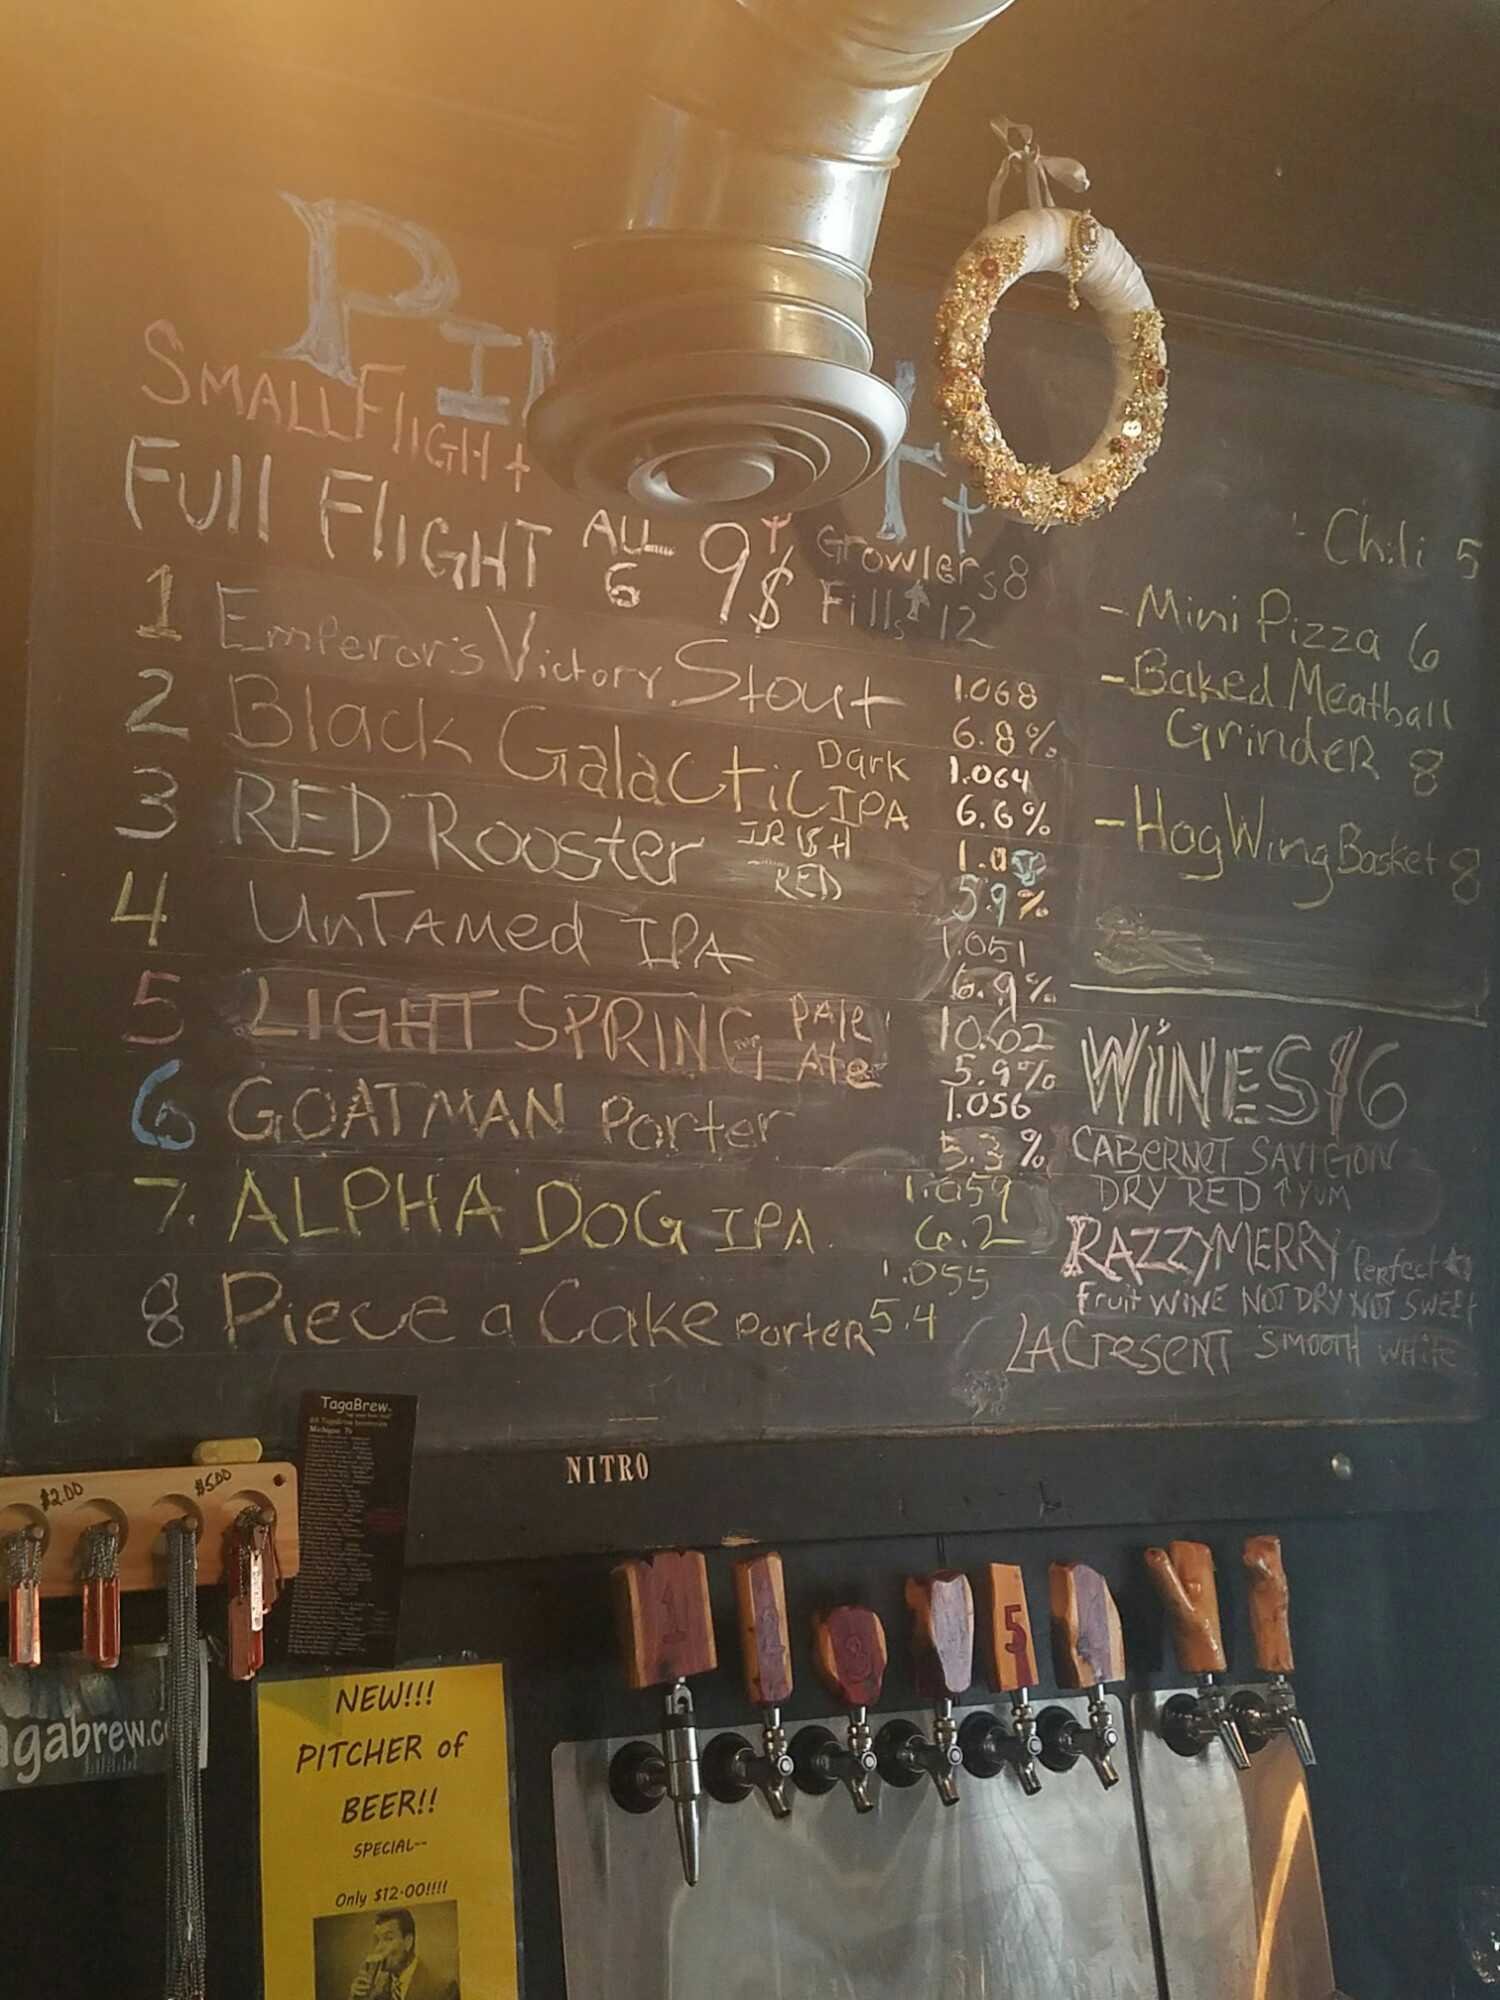 SMALL FLIGHT
FUll FlIGHT ALL 6 9$
Growlers 8
Fills 12
1 Emperor's Victory Stout 1.068
6.8%
2 Black Galactic Dark IPA 1.064
6.6%
3 RED Rooster IRISH RED
5.9%
4 UnTAMed IPA 1.051
6.9%
5 LIGHT SPRING Pale Ale 10.62
5.9%
6 GOATMAN Porter 1.056
5.3%
7. ALPHA DOG IPA. 1.059
6.2
8 Piece a Cake PorteR 1.055
5.4
- Chili 5
- Mini Pizza 6
- Baked Meatball
GrindeR 8
- Hog Wing Basket 8
WiNES $6
CABerNeT SAVIGON
DRY RED ↑ YUM
RAZZYMERRY Perfect
Fruit WINE NOT DRY NOT SWEET
LACresENT SMOOTH WHITE
TagaBrew
$2.00
$5.00
NITRO
1
2
3
5
agabrew.c
NEW!!!
PITCHER of
BEER!!
SPECIAL--
Only $12.00!!!!